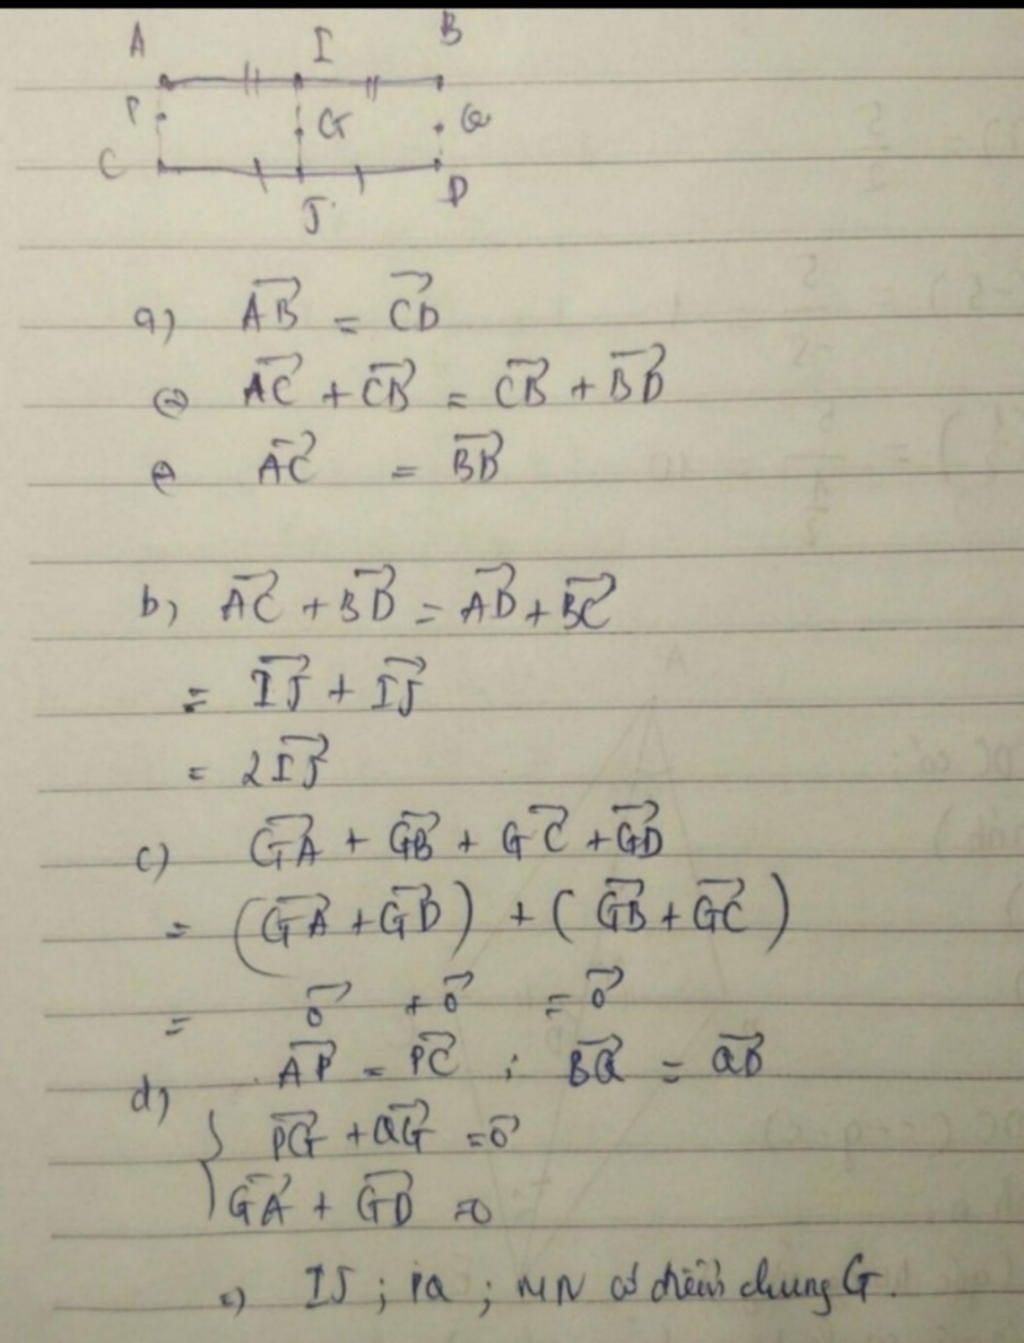 A I B
P G Q
C J D
a) \overrightarrow{AB} = \overrightarrow{CD}
⇔ \overrightarrow{AC} + \overrightarrow{CB} = \overrightarrow{CB} + \overrightarrow{BD}
⇔ \overrightarrow{AC} = \overrightarrow{BD}
b) \overrightarrow{AC} + \overrightarrow{BD} = \overrightarrow{AD} + \overrightarrow{BC}
= \overrightarrow{IJ} + \overrightarrow{IJ}
= 2\overrightarrow{IJ}
c) \overrightarrow{GA} + \overrightarrow{GB} + \overrightarrow{GC} + \overrightarrow{GD}
= (\overrightarrow{GA} + \overrightarrow{GD}) + (\overrightarrow{GB} + \overrightarrow{GC})
= \overrightarrow{0} + \overrightarrow{0} = \overrightarrow{0}
d) \overrightarrow{AP} = \overrightarrow{PC} ; \overrightarrow{BQ} = \overrightarrow{QD}
\overrightarrow{PG} + \overrightarrow{QG} = \overrightarrow{0}
\overrightarrow{GA} + \overrightarrow{GD} = 0
=> IJ ; PQ ; MN có điểm chung G.